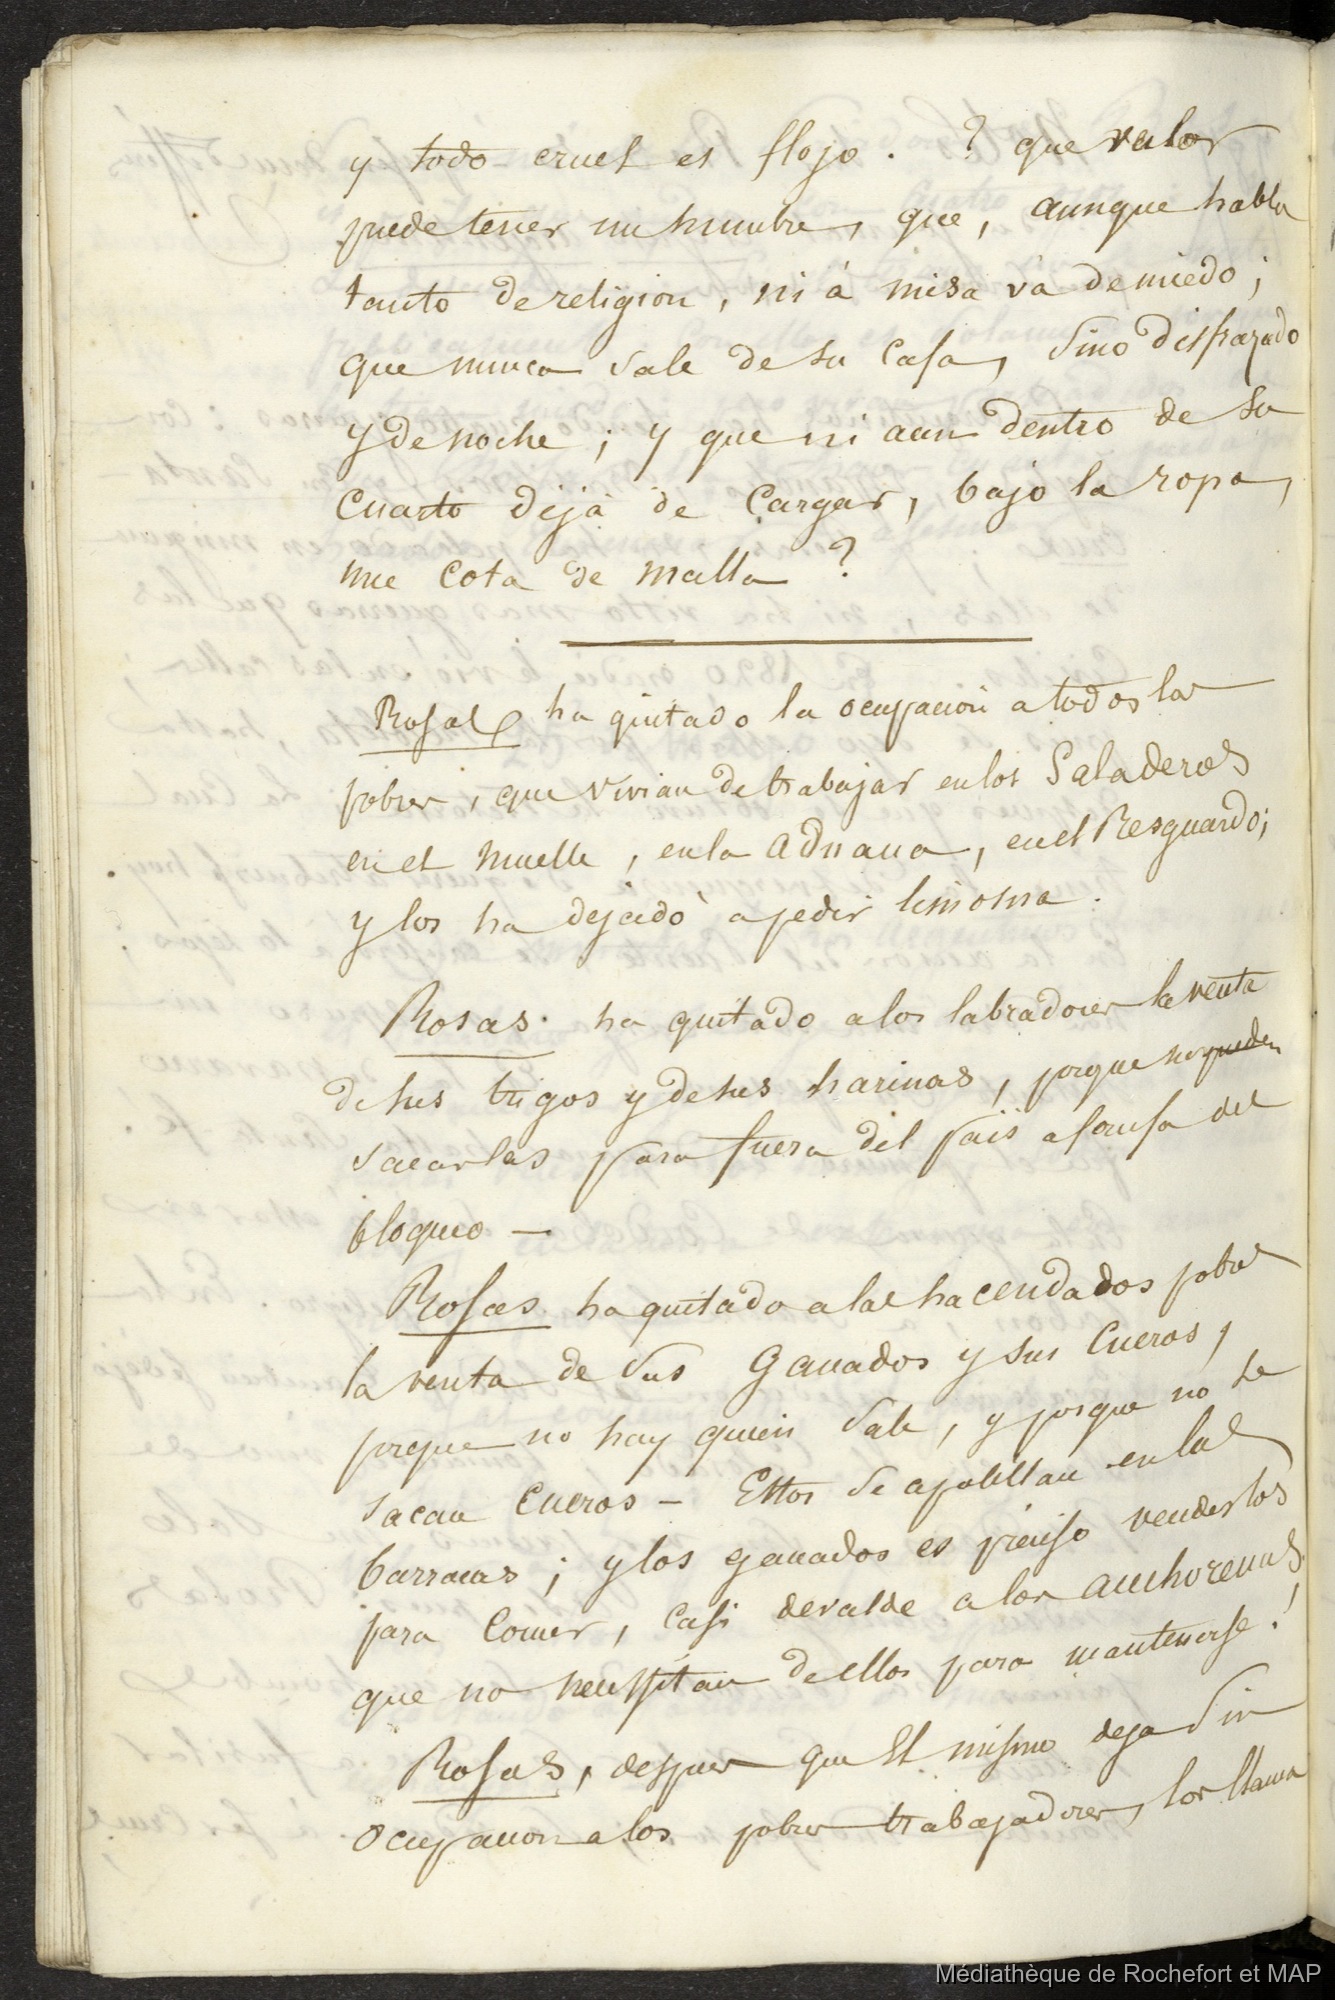 y todo cruel es flojo. ? que valor
puede tener un hombre, que, aunque habla
tanto de religion, ni á misa vá de miedo;
que nunca sale de su casa, sino disfrazado
y de noche; y que ni aun dentro de su
cuarto deja de cargar, bajo la ropa,
una cota de malla ?
Rosas ha quitado la ocupacion a todos los
pobres, que vivian de trabajar en los Saladeros
en el muelle, en la aduana, en el Resguardo;
y los ha dejado a pedir limosna.
Rosas ha quitado a los labradores la venta
de sus trigos y de sus harinas, porque no pueden
sacarlas para fuera del pais a causa del
bloqueo —
Rosas ha quitado a los hacendados pobres
la venta de sus Ganados y sus Cueros,
porque no hay quien sale, y porque no se
sacan Cueros — Estos se apolillan en las
barracas; y los ganados es preciso venderlos
para comer, casi devalde a los anchorenas
que no necesitan de ellos para mantenerse!
Rosas, despues que El mismo deja sin
ocupacion a los pobres trabajadores, los llama
Médiathèque de Rochefort et MAP